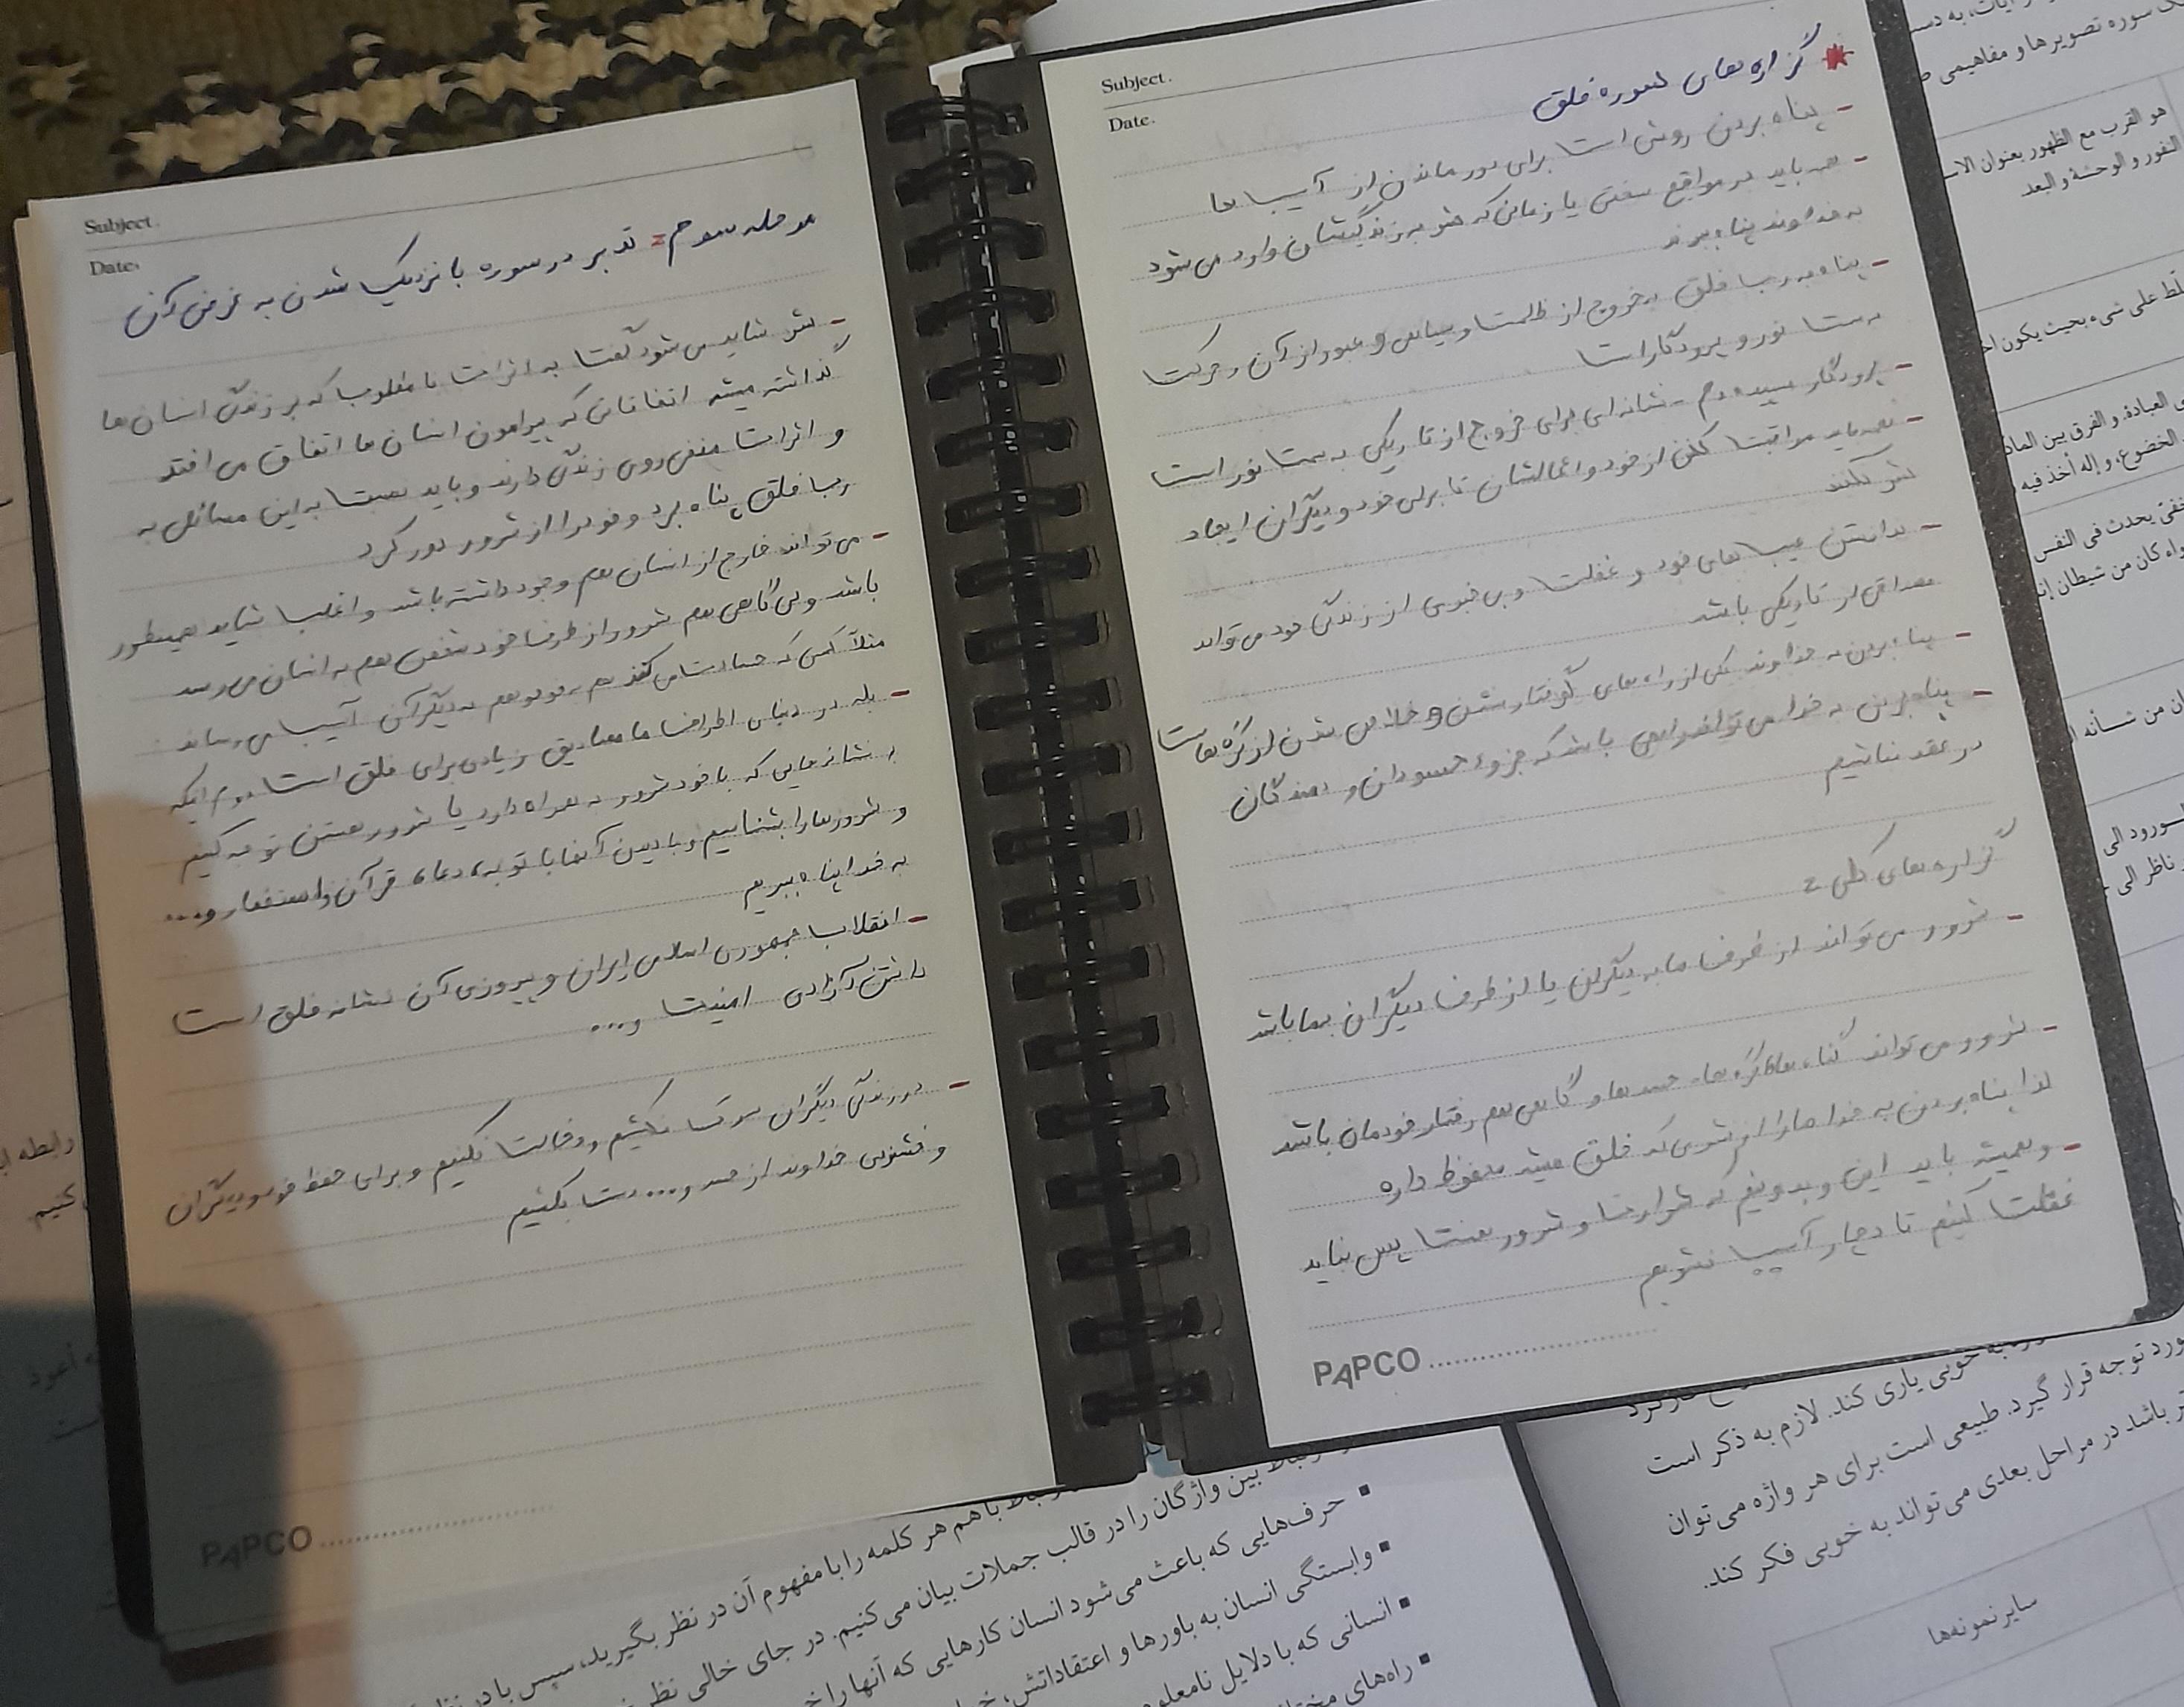 Subject.
Date.
گزاره های سوره فلق
- پناه بردن روشی است برای دور ماندن از آسیب ها
- همه باید در مواقع سختی یا زمانی که شر به زندگیشان وارد می شود
به خداوند پناه ببرند
- پناه به رب فلق به خروج از ظلمت و سیاهی و عبور از آن و حرکت
به سمت نور و پروردگار است
- پروردگار سپیده دم - نشانه ای برای خروج از تاریکی به سمت نور است
- همه باید مراقبت کنن از خود و اعمالشان تا برای خود و دیگران ایجاد
شر نکنند
- ندانستن عیب های خود و غفلت و بی خبری از زندگی خود می تواند
مصداقی از تاریکی باشد
- پناه بردن به خداوند یکی از راه های گرفتار نشدن و خلاص شدن از گره هاست
- پناه بردن به خدا می تواند راهی باشد که جزء حسودان و دمندگان
در عقد نباشیم
گزاره های کلی :
- شرور می تواند از طرف ما به دیگران یا از طرف دیگران بما باشد
- شرور می تواند گناه ها، گره ها، حسد ها و گاهی هم رفتار خودمان باشد
لذا پناه بردن به خدا ما را از شری که خلق میشه محفوظ داره
- و همیشه باید این و بدونیم که شرارت و شرور هست پس نباید
غفلت کنیم تا دچار آسیب نشویم
PAPCO
Subject.
Date.
مرحله سوم: تدبر در سوره با نزدیک شدن به غرض آن
- شر شاید می شود گفت به اثرات نامطلوب که بر زندگی انسان ها
گذاشته میشه اتفاقاتی که پیرامون انسان ها اتفاق می افتد
و اثرات منفی روی زندگی دارند و باید نسبت به این مسائل به
رب فلق پناه برد و خود را از شرور دور کرد
- می تواند خارج از انسان هم وجود داشته باشد و اغلب شاید همینطور
باشد ولی گاهی هم شرور از طرف خود شخص هم به انسان می رسد
مثلاً کسی که حسادت می کند هم به خود هم به دیگران آسیب می رساند
- بله در دنیای اطراف ما مصادیق زیادی برای فلق است دوم اینکه
به نشانه هایی که با خود شرور به همراه دارد یا شرور هستن توجه کنیم
و شرورها را بشناسیم و با دیدن آنها با توبه، دعا، قرآن و استغفار و...
به خدا پناه ببریم
- انقلاب جمهوری اسلامی ایران و پیروزی آن نشانه فلق است
داشتن آزادی امنیت و...
- در زندگی دیگران سرک نکشیم و دخالت نکنیم و برای حفظ خود و دیگران
و خشنودی خداوند از حسد و... دست بکشیم
PAPCO
هو القرب مع الظهور بعنوان
النفور و الوحشة و البعد
سلط علی شیء بحیث یکون
العبادة، و الفرق بین
الخضوع، و إله أخذ فیه
یحدث فی النفس
کان من شیطان
ناظر الی
رابطه
کنیم.
أعوذ
به خوبی یاری کند. لازم به ذکر است
مورد توجه قرار گیرد. طبیعی است برای هر واژه می توان
باشد در مراحل بعدی می تواند به خوبی فکر کند.
سایر نمونه ها
با هم هر کلمه را با مفهوم آن در نظر بگیرید، سپس با در
بین واژگان را در قالب جملات بیان می کنیم. در جای خالی
▪ حرف هایی که باعث می شود انسان کارهایی که آنها را
▪ وابستگی انسان به باورها و اعتقاداتش،
▪ انسانی که با دلایل
▪ راه های